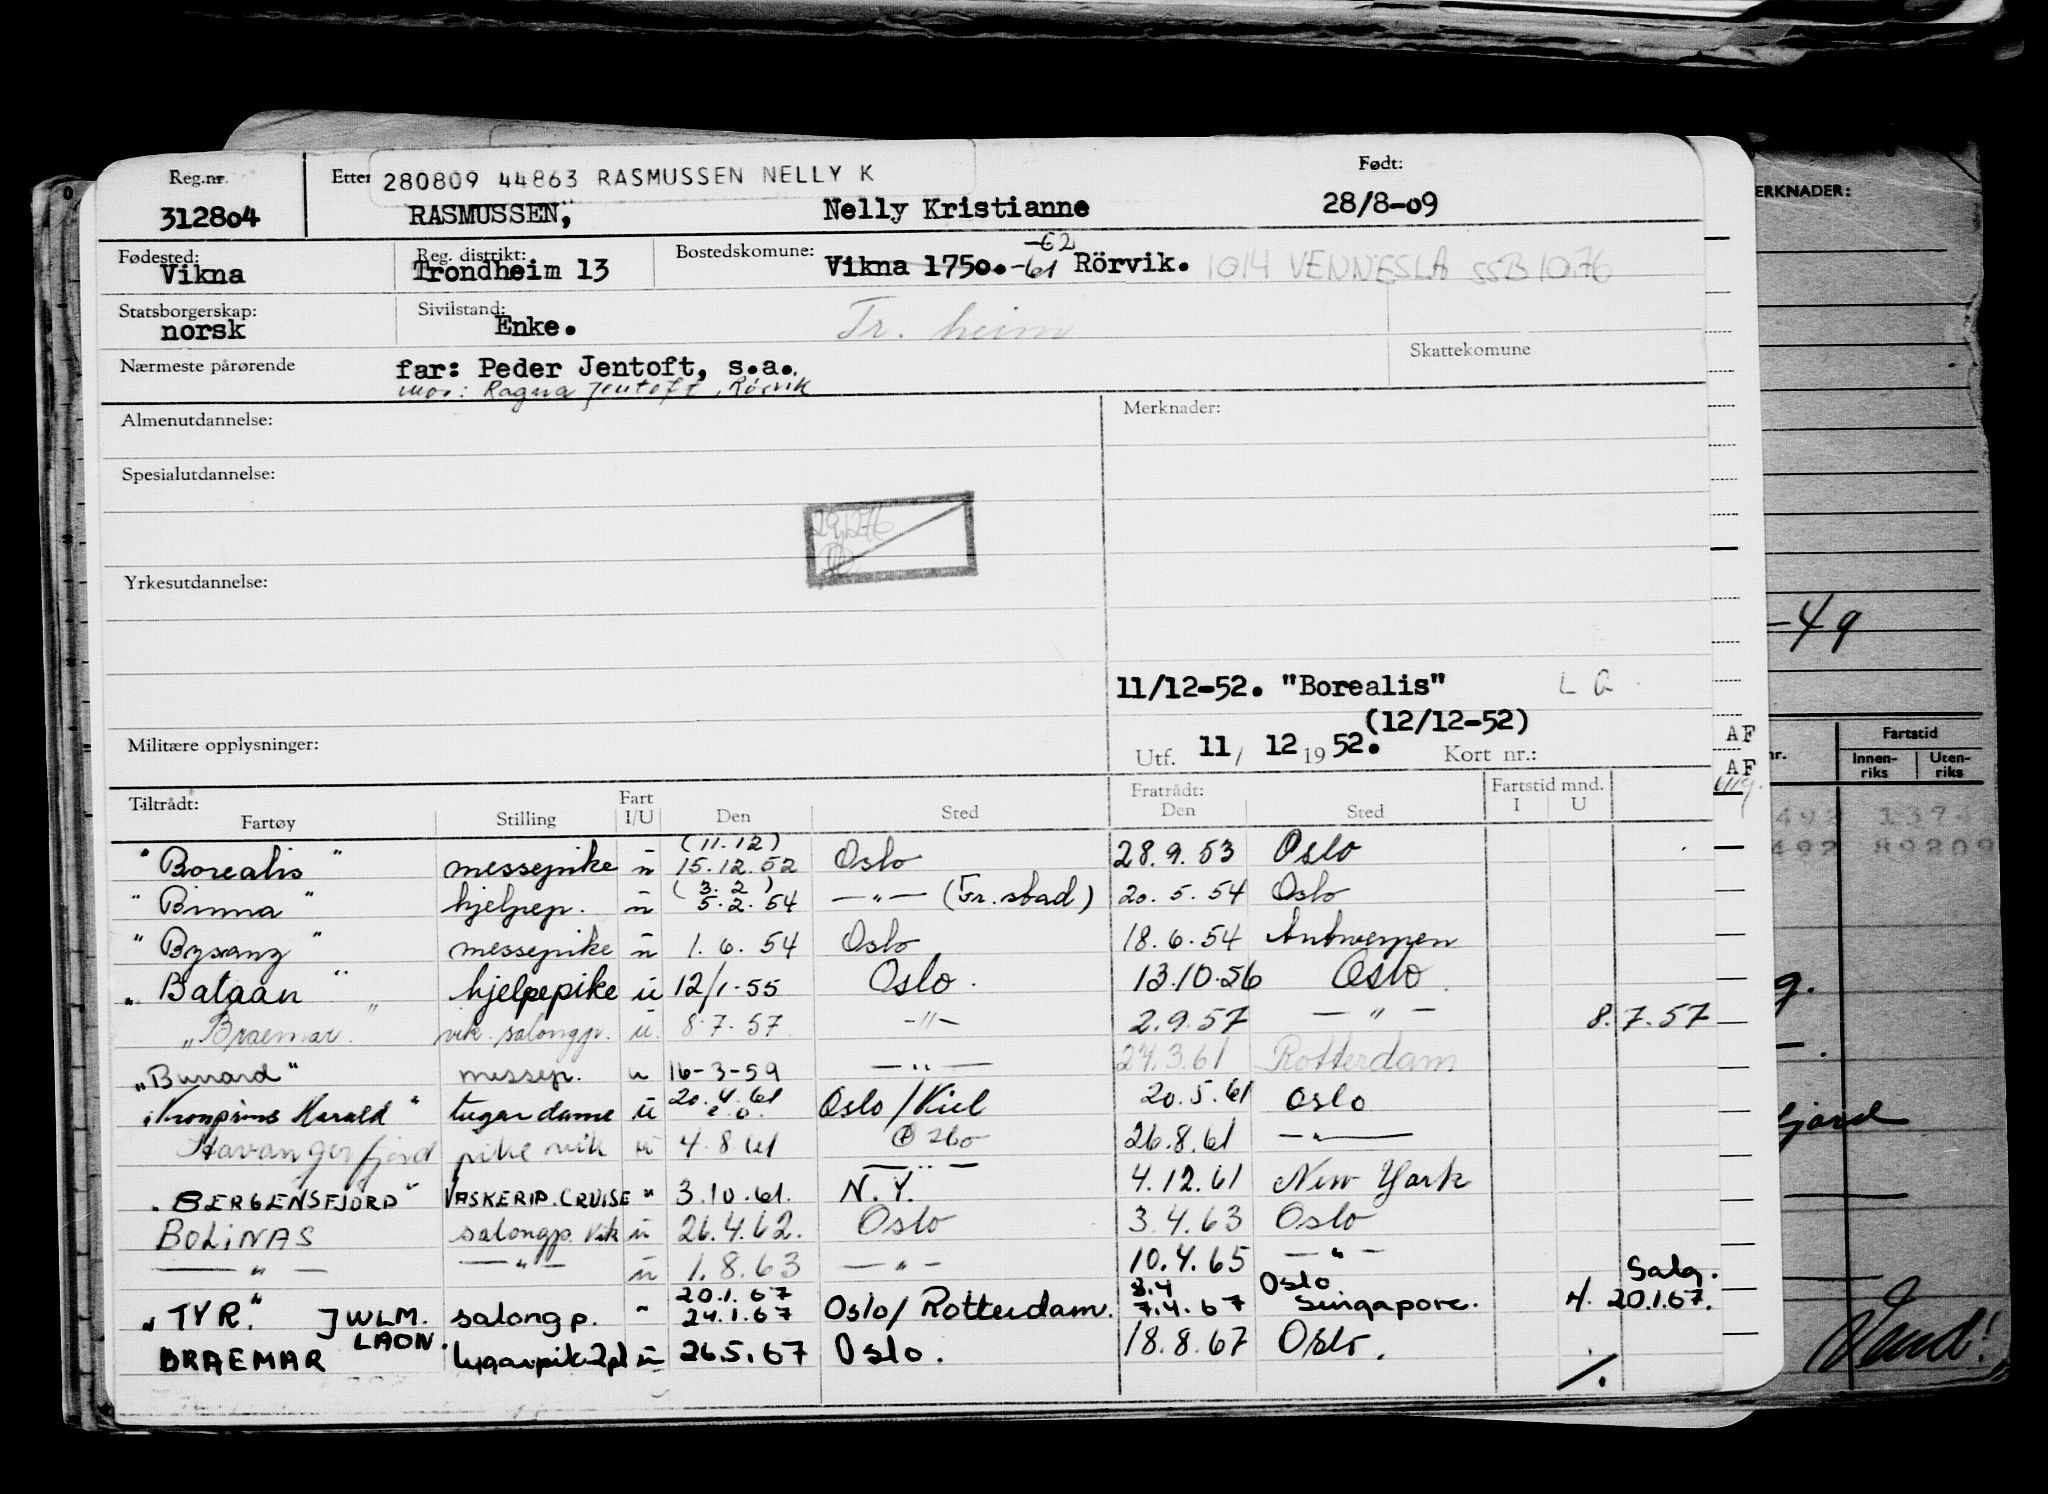 Reg.nr. Etter 280809 44863 RASMUSSEN NELLY K Født:
312804 RASMUSSEN, Nelly Kristianne 28/8-09
ERKNADER:
Fødested: Reg. distrikt: Bostedskomune: -62
Vikna Trondheim 13 Vikna 1750. -61 Rörvik. 1014 VENNESLA SSB 10.76
Statsborgerskap: Sivilstand:
norsk Enke. Tr. heim
Nærmeste pårørende far: Peder Jentoft, s.a. Skattekomune
mor: Ragna Jentoft, Rörvik
Almenutdannelse: Merknader:
Spesialutdannelse:
Yrkesutdannelse:
-49
11/12-52. "Borealis" L
(12/12-52)
Militære opplysninger: Utf. 11/ 12 1952. Kort nr.:
AF
AF
nr. Fartstid
Innenriks Utenriks
Tiltrådt: Fart Fratrådt: Fartstid mnd.
Fartøy Stilling I/U Den Sted Den Sted I U
(11.12)
"Borealis" messepike ü 15.12.52 Oslo 28.9.53 Oslo
(3.2)
"Binna" hjelpep. ü 5.2.54 —"— (Fr.stad) 20.5.54 Oslo
"Bysanz" messepike ü 1.6.54 Oslo 18.6.54 Antwerpen
"Bataan" hjelpepike ü 12/1-55 Oslo. 13.10.56 Oslo.
"Braemar" vik. salongp. ü. 8.7.57 —"— 2.9.57 —"— 8.7.57
"Burrard" messep. u 16-3-59 —"— 24.3.61 Rotterdam
20.4.61
"Kronprins Harald" lugardame ü e.o. Oslo/Kiel 20.5.61 Oslo
Stavangerfjord pike vik ü 4.8.61 Oslo 26.8.61 —"—
—"—
"BERGENSFJORD" VASKERIP. CRUISE " 3.10.61. N.Y. 4.12.61 New York
BOLINAS salongp. vik ü 26.4.62. Oslo 3.4.63 Oslo
—"— —"— ü 1.8.63 —"— 10.4.65 —"—
20.1.67 8.4 Oslo Salg.
"TYR." ] WLM. salongp. " 24.1.67 Oslo/Rotterdam. 7.4.67 Singapore. 4. 20.1.67.
LAON.
BRAEMAR lugarpik 2pl ü 26.5.67 Oslo. 18.8.67 Oslo. /.